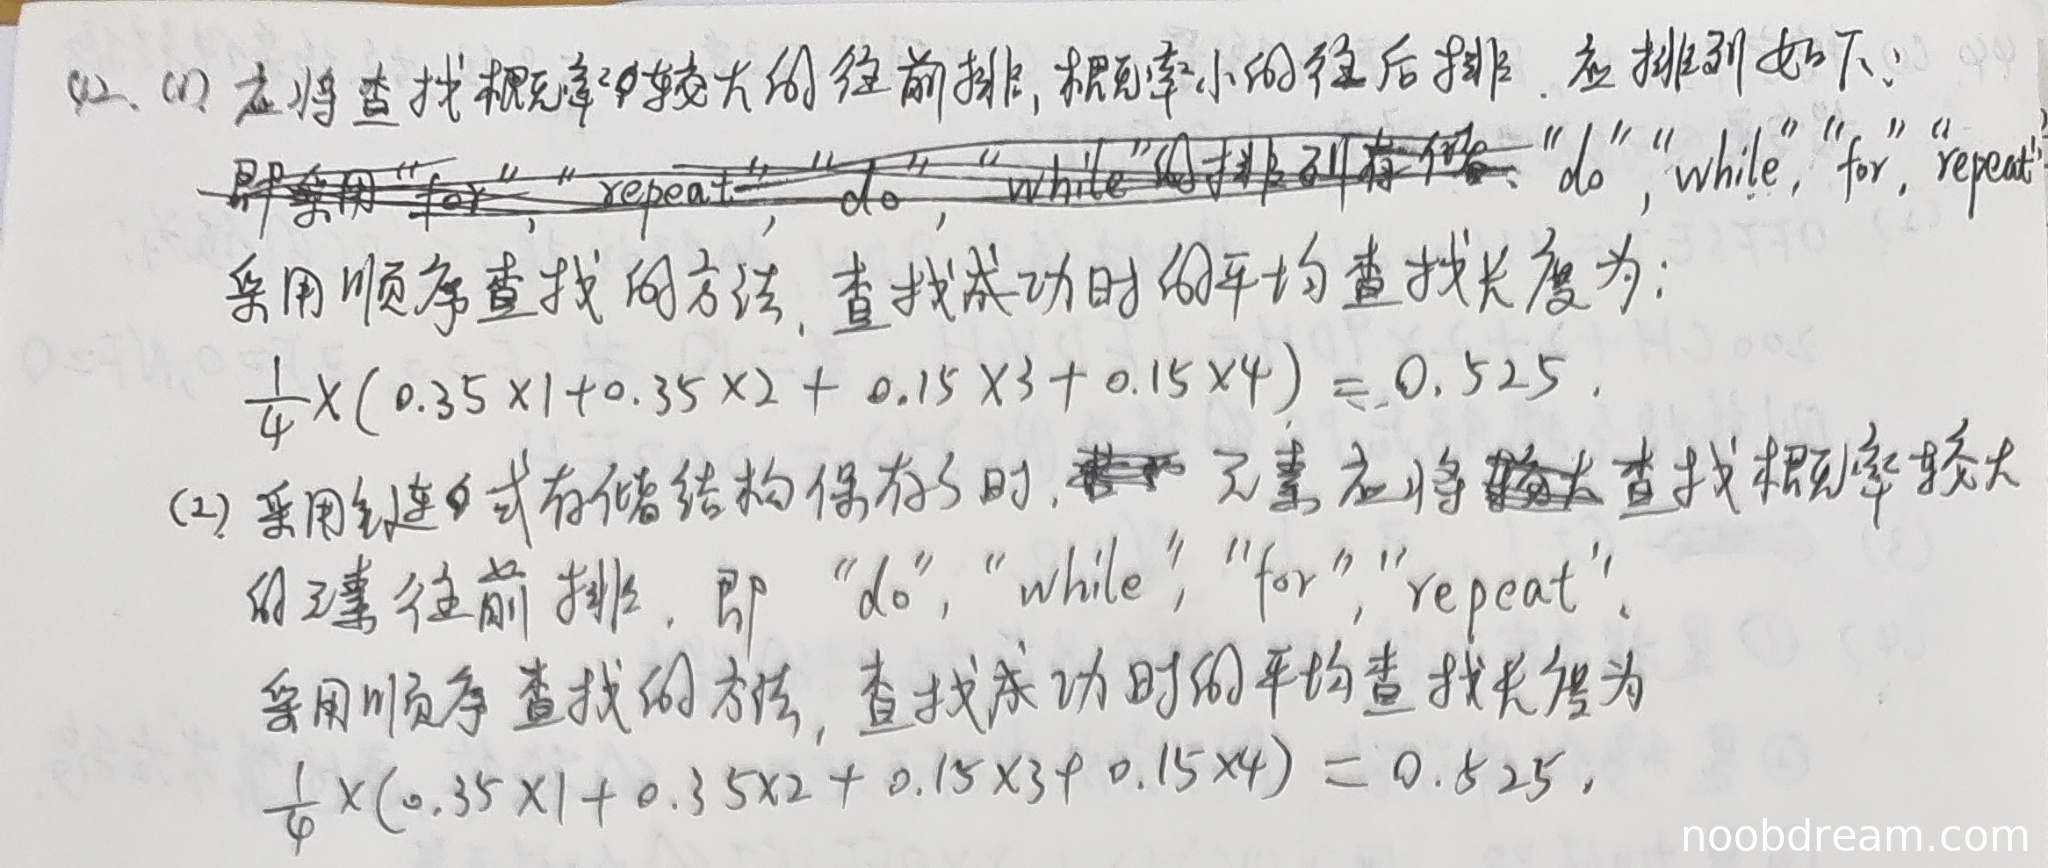 42. (1) 应将查找概率较大的往前排,概率小的往后排. 应排列如下:
即采用"for", "repeat", "do", "while"的排列存储. "do", "while", "for", "repeat".
采用顺序查找的方法,查找成功时的平均查找长度为:
1/4×(0.35×1+0.35×2+0.15×3+0.15×4)=0.525.
(2) 采用链式存储结构保存S时, 元素应将查找概率较大
的元素往前排. 即 "do", "while", "for", "repeat".
采用顺序查找的方法, 查找成功时的平均查找长度为
1/4×(0.35×1+0.35×2+0.15×3+0.15×4)=0.525.
noobdream.com